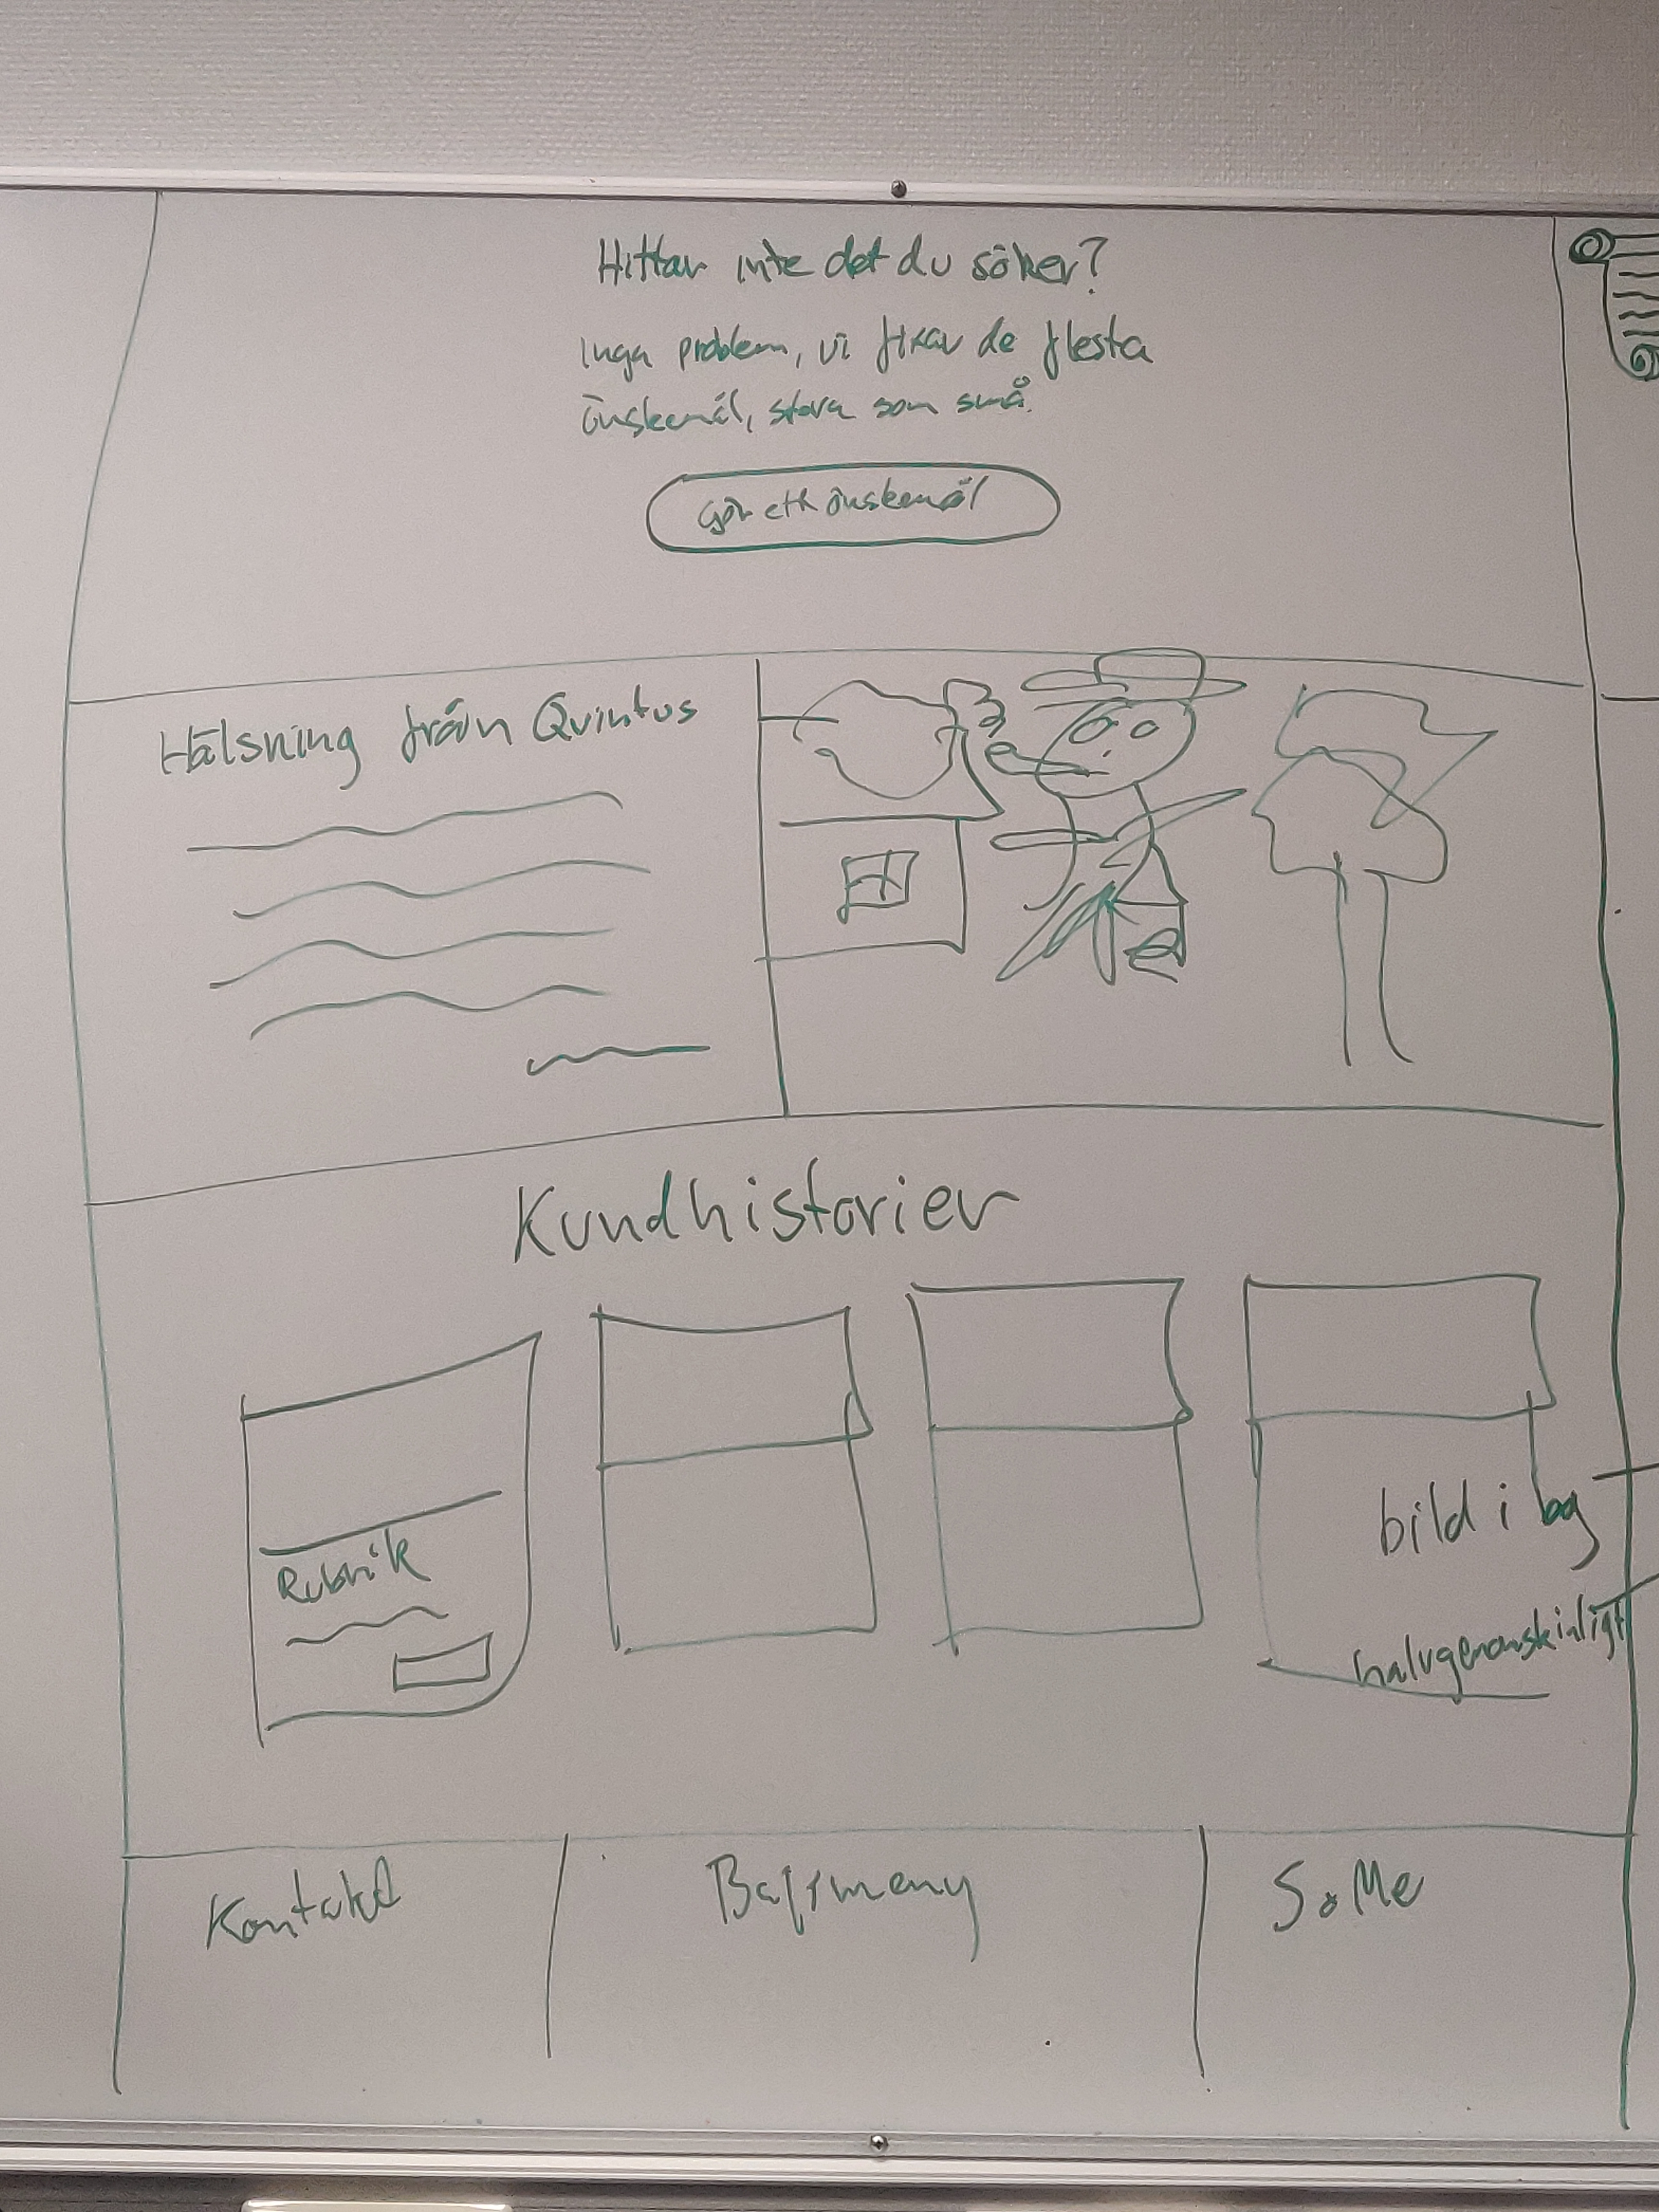 Hittar inte det du söker?
Inga problem, vi fixar de flesta
önskemål, stora som små.
Gör ett önskemål
Hälsning från Qvintus
Kundhistorier
Rubrik
bild i bg
halvgenomskinligt
Kontakt
SoMe